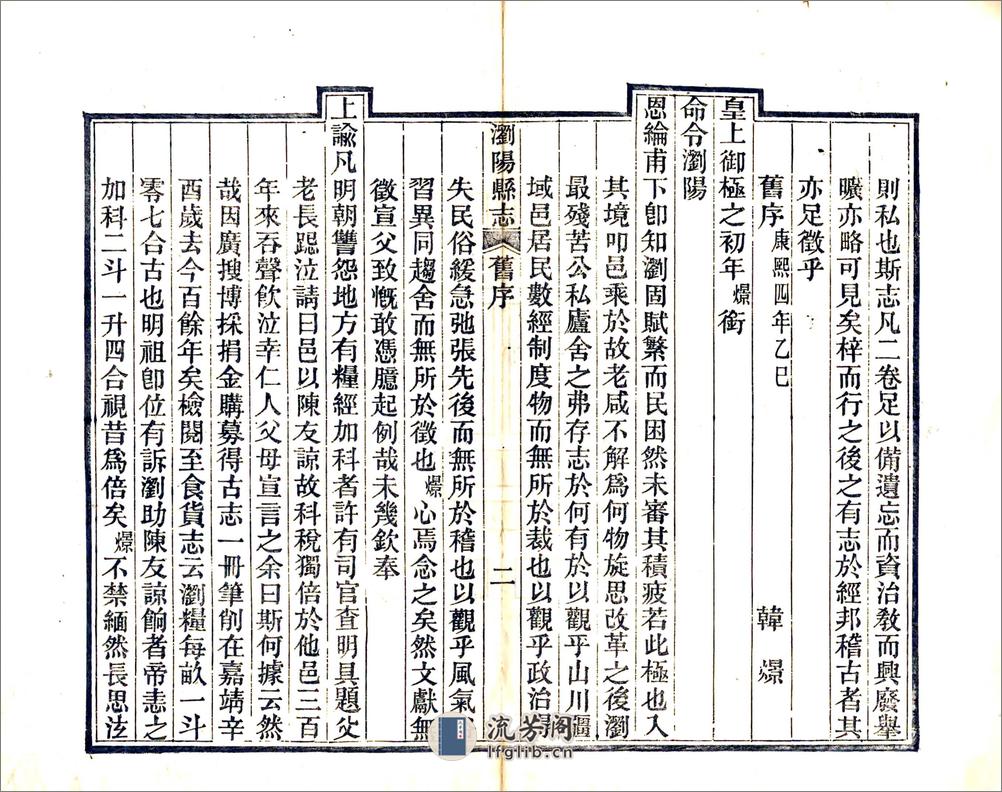 則私也斯志凡二卷足以備遺忘而資治教而興廢舉
曠亦略可見矣梓而行之後之有志於經邦稽古者其
亦足徵乎
舊序 康熙四年乙巳 韓燝
皇上御極之初年燝銜
命令瀏陽
恩綸甫下卽知瀏固賦繁而民困然未審其積疲若此極也入
其境叩邑乘於故老咸不解爲何物旋思改革之後瀏
最殘苦公私廬舍之弗存志於何有於以觀乎山川疆
域邑居民數經制度物而無所於裁也以觀乎政治得
瀏陽縣志 舊序 二
失民俗緩急弛張先後而無所於稽也以觀乎風氣
習異同趨舍而無所於徵也燝心焉念之矣然文獻無
徵宣父致慨敢憑臆起例哉未幾欽奉
上諭凡明朝讐怨地方有糧經加科者許有司官查明具題父
老長跽泣請曰邑以陳友諒故科稅獨倍於他邑三百
年來吞聲飲泣幸仁人父母宣言之余曰斯何據云然
哉因廣搜博採捐金購募得古志一冊筆削在嘉靖辛
酉歲去今百餘年矣檢閱至食貨志云瀏糧每畝一斗
零七合古也明祖卽位有訴瀏助陳友諒餉者帝恚之
加科二斗一升四合視昔爲倍矣燝不禁緬然長思泫
流芳阁
lfglib.cn